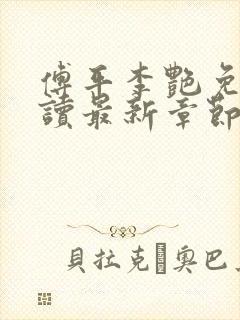 傅平李艷免
讀最新章節
貝拉克 奧巴